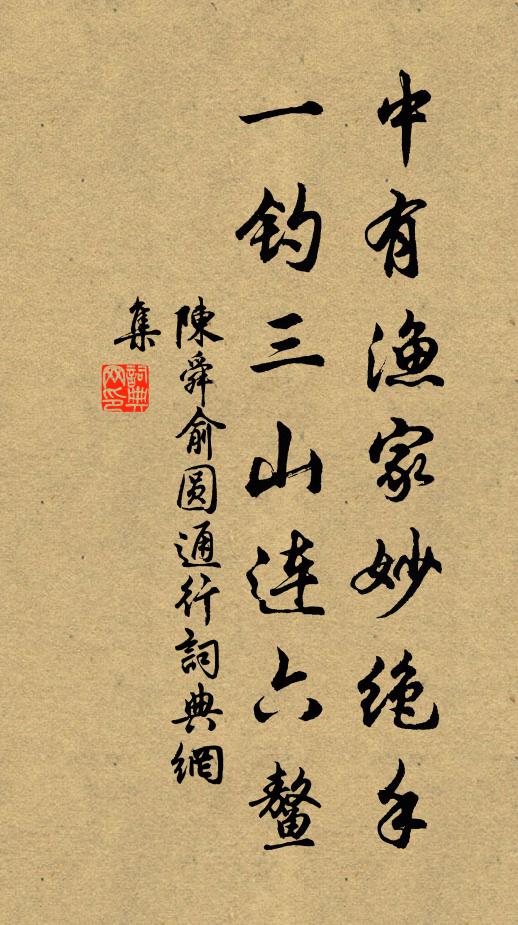 中有渔家妙绝手
一钓三山连六鳌
陳舜俞圆通行詞典網
集
詞典
网印